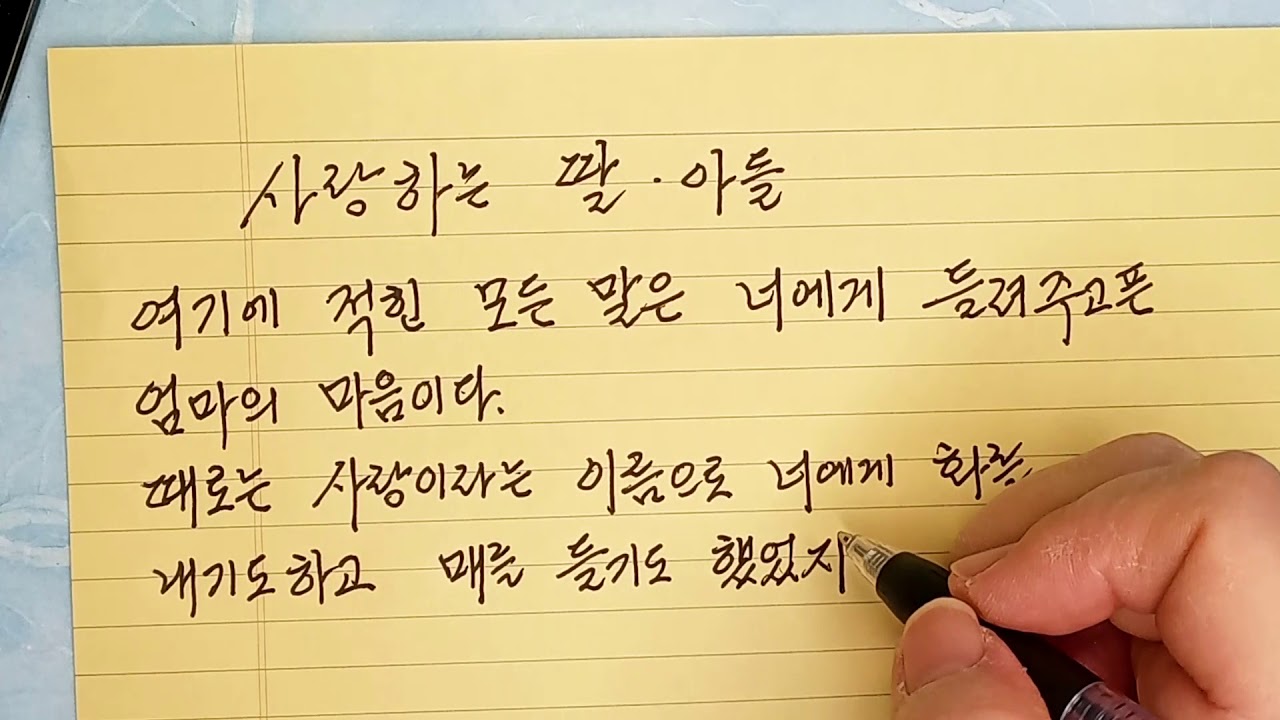 사랑하는 딸·아들
여기에 적힌 모든 말은 너에게 들려주고픈
엄마의 마음이다.
때로는 사랑이라는 이름으로 너에게 화를
내기도하고 매를 들기도 했었지